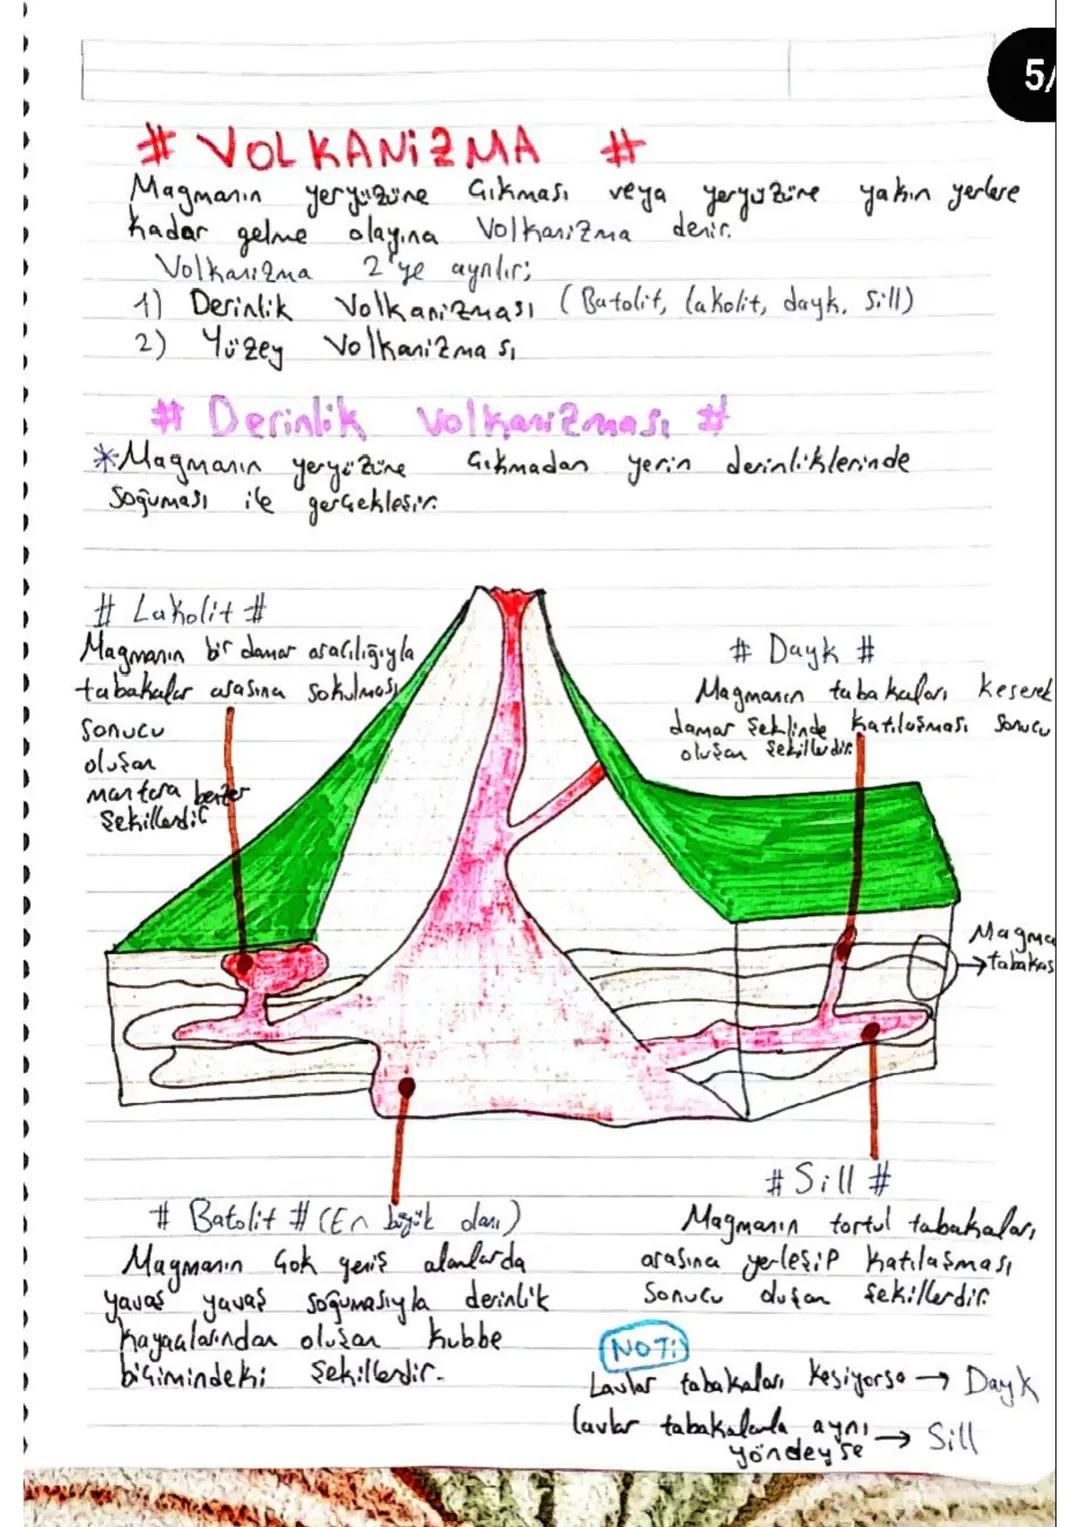 5/
# VOLKANİZMA #
Magmanın yeryüzüne çıkması veya yeryüzüne yakın yerlere
kadar gelme olayına Volkanizma denir.
Volkanizma 2'ye ayrılır;
1) Derinlik Volkanizması (Batolit, lakolit, dayk, sill)
2) Yüzey Volkanizması
# Derinlik Volkanizması #
*Magmanın yeryüzüne çıkmadan yerin derinliklerinde
soğuması ile gerçekleşir.
# Lakolit #
Magmanın bir damar aracılığıyla
tabakalar arasına sokulması
sonucu
oluşan
mantara benzer
şekillerdir
# Dayk #
Magmanın tabakaları keserek
damar şeklinde katılaşması sonucu
oluşan şekillerdir.
Magma
→tabakas
# Batolit # (En büyük olanı)
Magmanın çok geniş alanlarda
yavaş yavaş soğumasıyla derinlik
kayaçlarından oluşan kubbe
biçimindeki şekillerdir.
# Sill #
Magmanın tortul tabakaları
arasına yerleşip katılaşması
sonucu oluşan şekillerdir.
NOT:
Lavlar tabakaları kesiyorsa → Dayk
lavlar tabakalarla aynı → Sill
yöndeyse